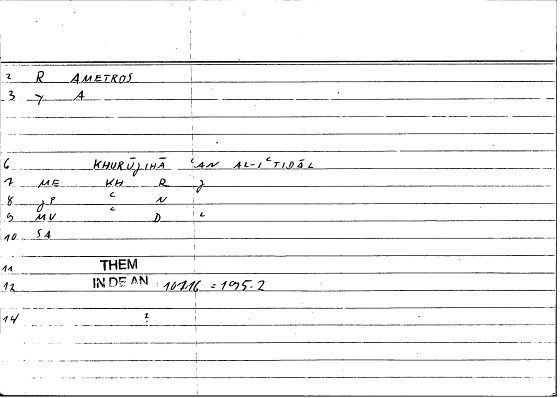 2 R AMETROS
3 y A
6 KHURŪJIHĀ ʿAN AL-IʿTIDĀL
7 ME KH R J
8 JP ʿ N
9 MV ʿ D ʿ
10 SA
11 THEM
12 IN DE AN : 10716 = 195.2
14 ?